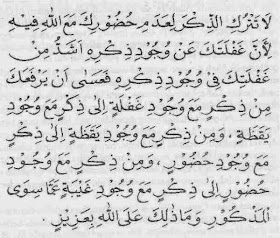 لَا تَتْرُكِ الذِّكْرَ لِعَدَمِ حُضُورِكَ مَعَ اللّٰهِ فِيْهِ
لِأَنَّ غَفْلَتَكَ عَنْ وُجُودِ ذِكْرِهِ أَشَدُّ مِنْ
غَفْلَتِكَ فِى وُجُودِ ذِكْرِهِ فَعَسَى أَنْ يَرْفَعَكَ
مِنْ ذِكْرٍ مَعَ وُجُودِ غَفْلَةٍ إِلَى ذِكْرٍ مَعَ وُجُودِ
يَقَظَةٍ ، وَمِنْ ذِكْرٍ مَعَ وُجُودِ يَقَظَةٍ إِلَى ذِكْرٍ
مَعَ وُجُودِ حُضُورٍ ، وَمِنْ ذِكْرٍ مَعَ وُجُودِ
حُضُورٍ إِلَى ذِكْرٍ مَعَ وُجُودِ غَيْبَةٍ عَمَّا سِوَى
الْمَذْكُورِ وَمَا ذٰلِكَ عَلَى اللّٰهِ بِعَزِيْزٍ .